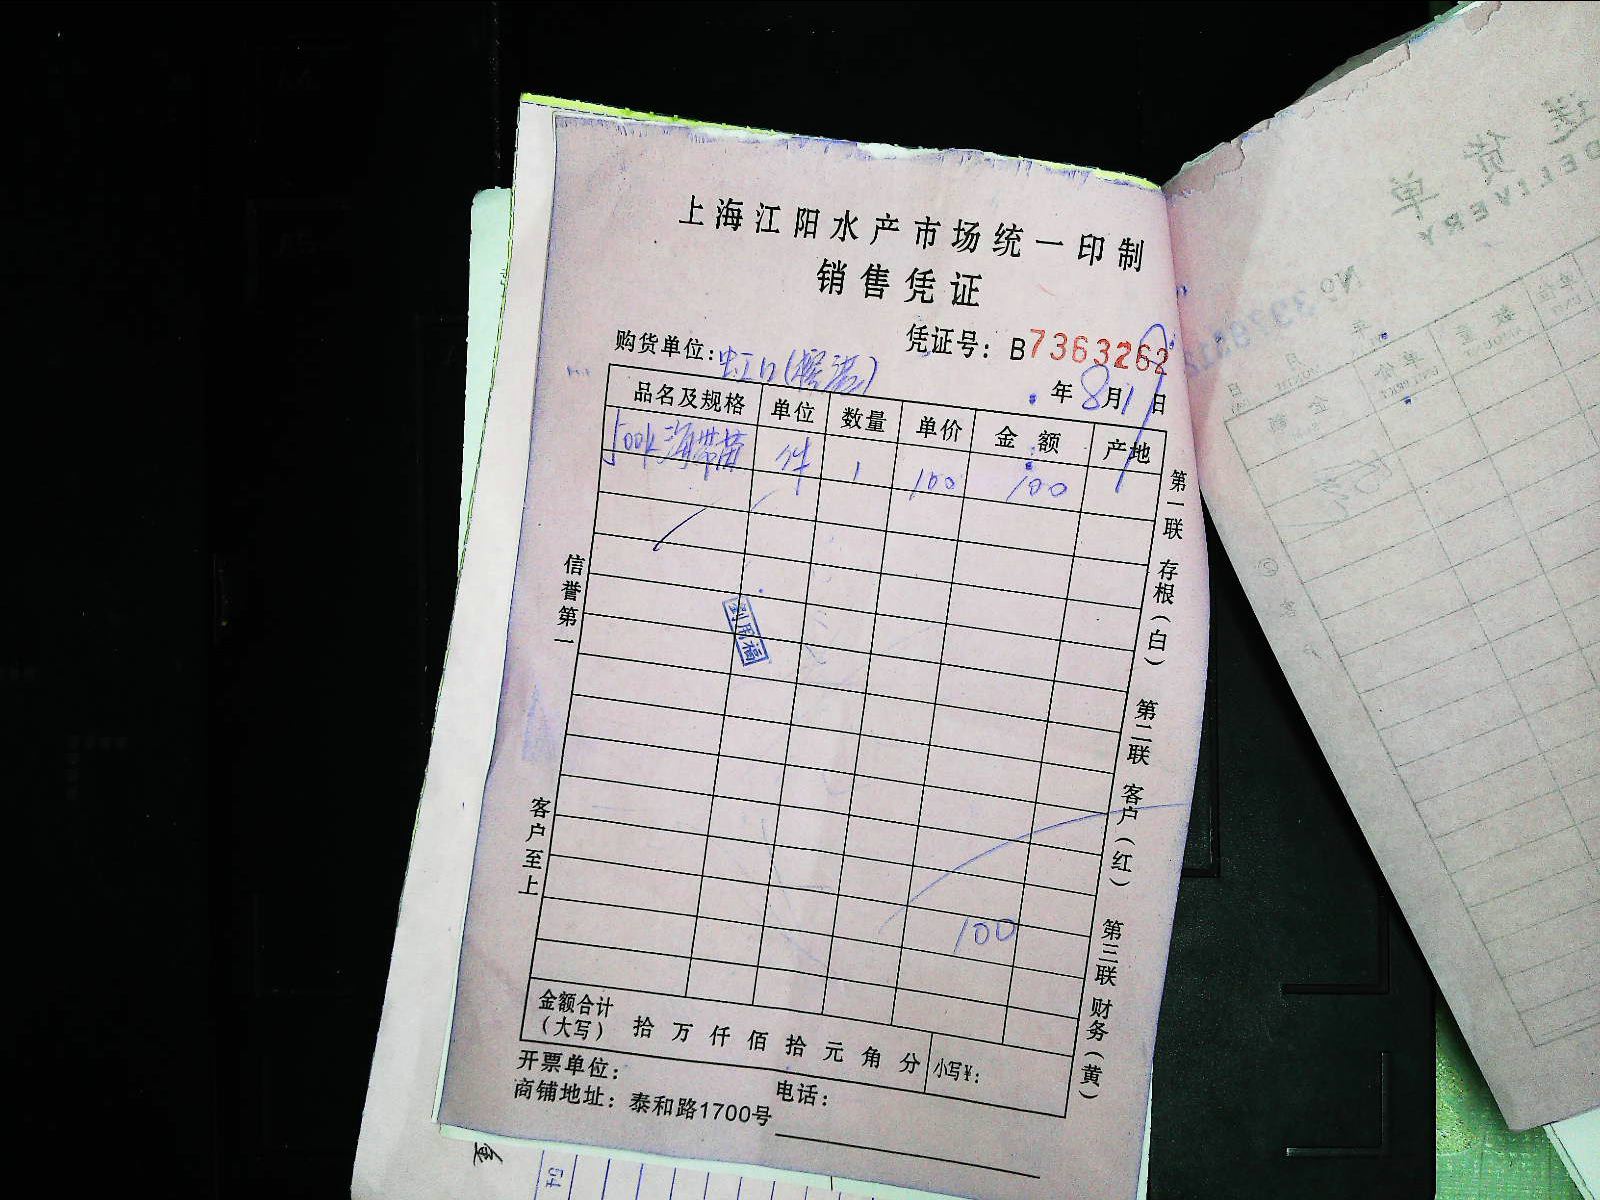 上海江阳水产市场统一印制
销售凭证
凭证号：B7363262
购货单位：虹口
年8月17日
品名及规格 单位 数量 单价 金额 产地
500k海带苗 件 1 100 100
100
金额合计
（大写） 拾 万 仟 佰 拾 元 角 分 小写¥：
开票单位： 电话：
商铺地址：泰和路1700号
信誉第一
客户至上
第一联 存根（白） 第二联 客户（红） 第三联 财务（黄）
送货单
DELIVERY